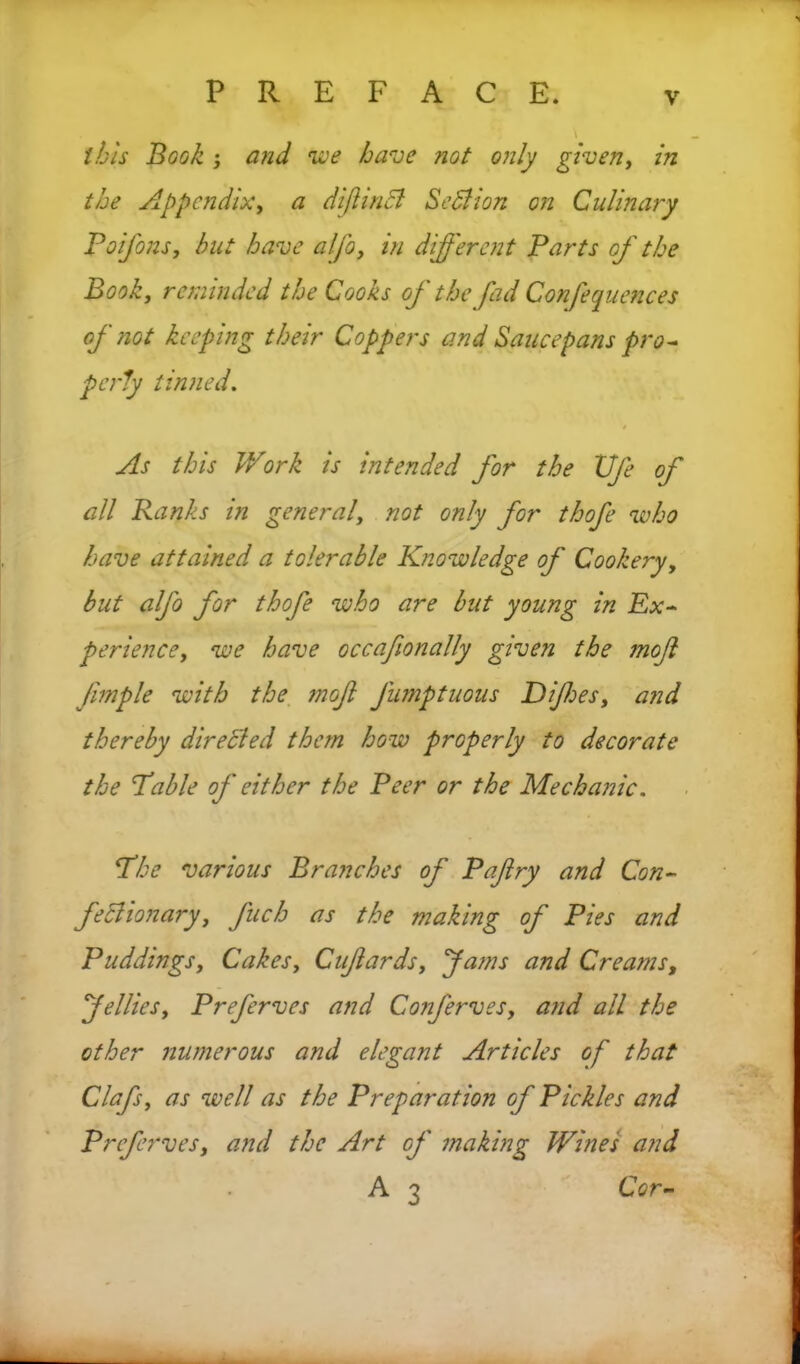 PREFACE. v
this Book ; and we have not only given, in
the Appendix, a diſtinct Section on Culinary
Poiſons, but have alſo, in different Parts of the
Book, reminded the Cooks of the ſad Conſequences
of not keeping their Coppers and Saucepans pro-
perly tinned.
As this Work is intended for the Uſe of
all Ranks in general, not only for thoſe who
have attained a tolerable Knowledge of Cookery,
but alſo for thoſe who are but young in Ex-
perience, we have occaſionally given the moſt
ſimple with the moſt ſumptuous Diſhes, and
thereby directed them how properly to decorate
the Table of either the Peer or the Mechanic.
The various Branches of Paſtry and Con-
fectionary, ſuch as the making of Pies and
Puddings, Cakes, Cuſtards, Jams and Creams,
Jellies, Preſerves and Conſerves, and all the
other numerous and elegant Articles of that
Claſs, as well as the Preparation of Pickles and
Preſerves, and the Art of making Wines and
A 3 Cor-